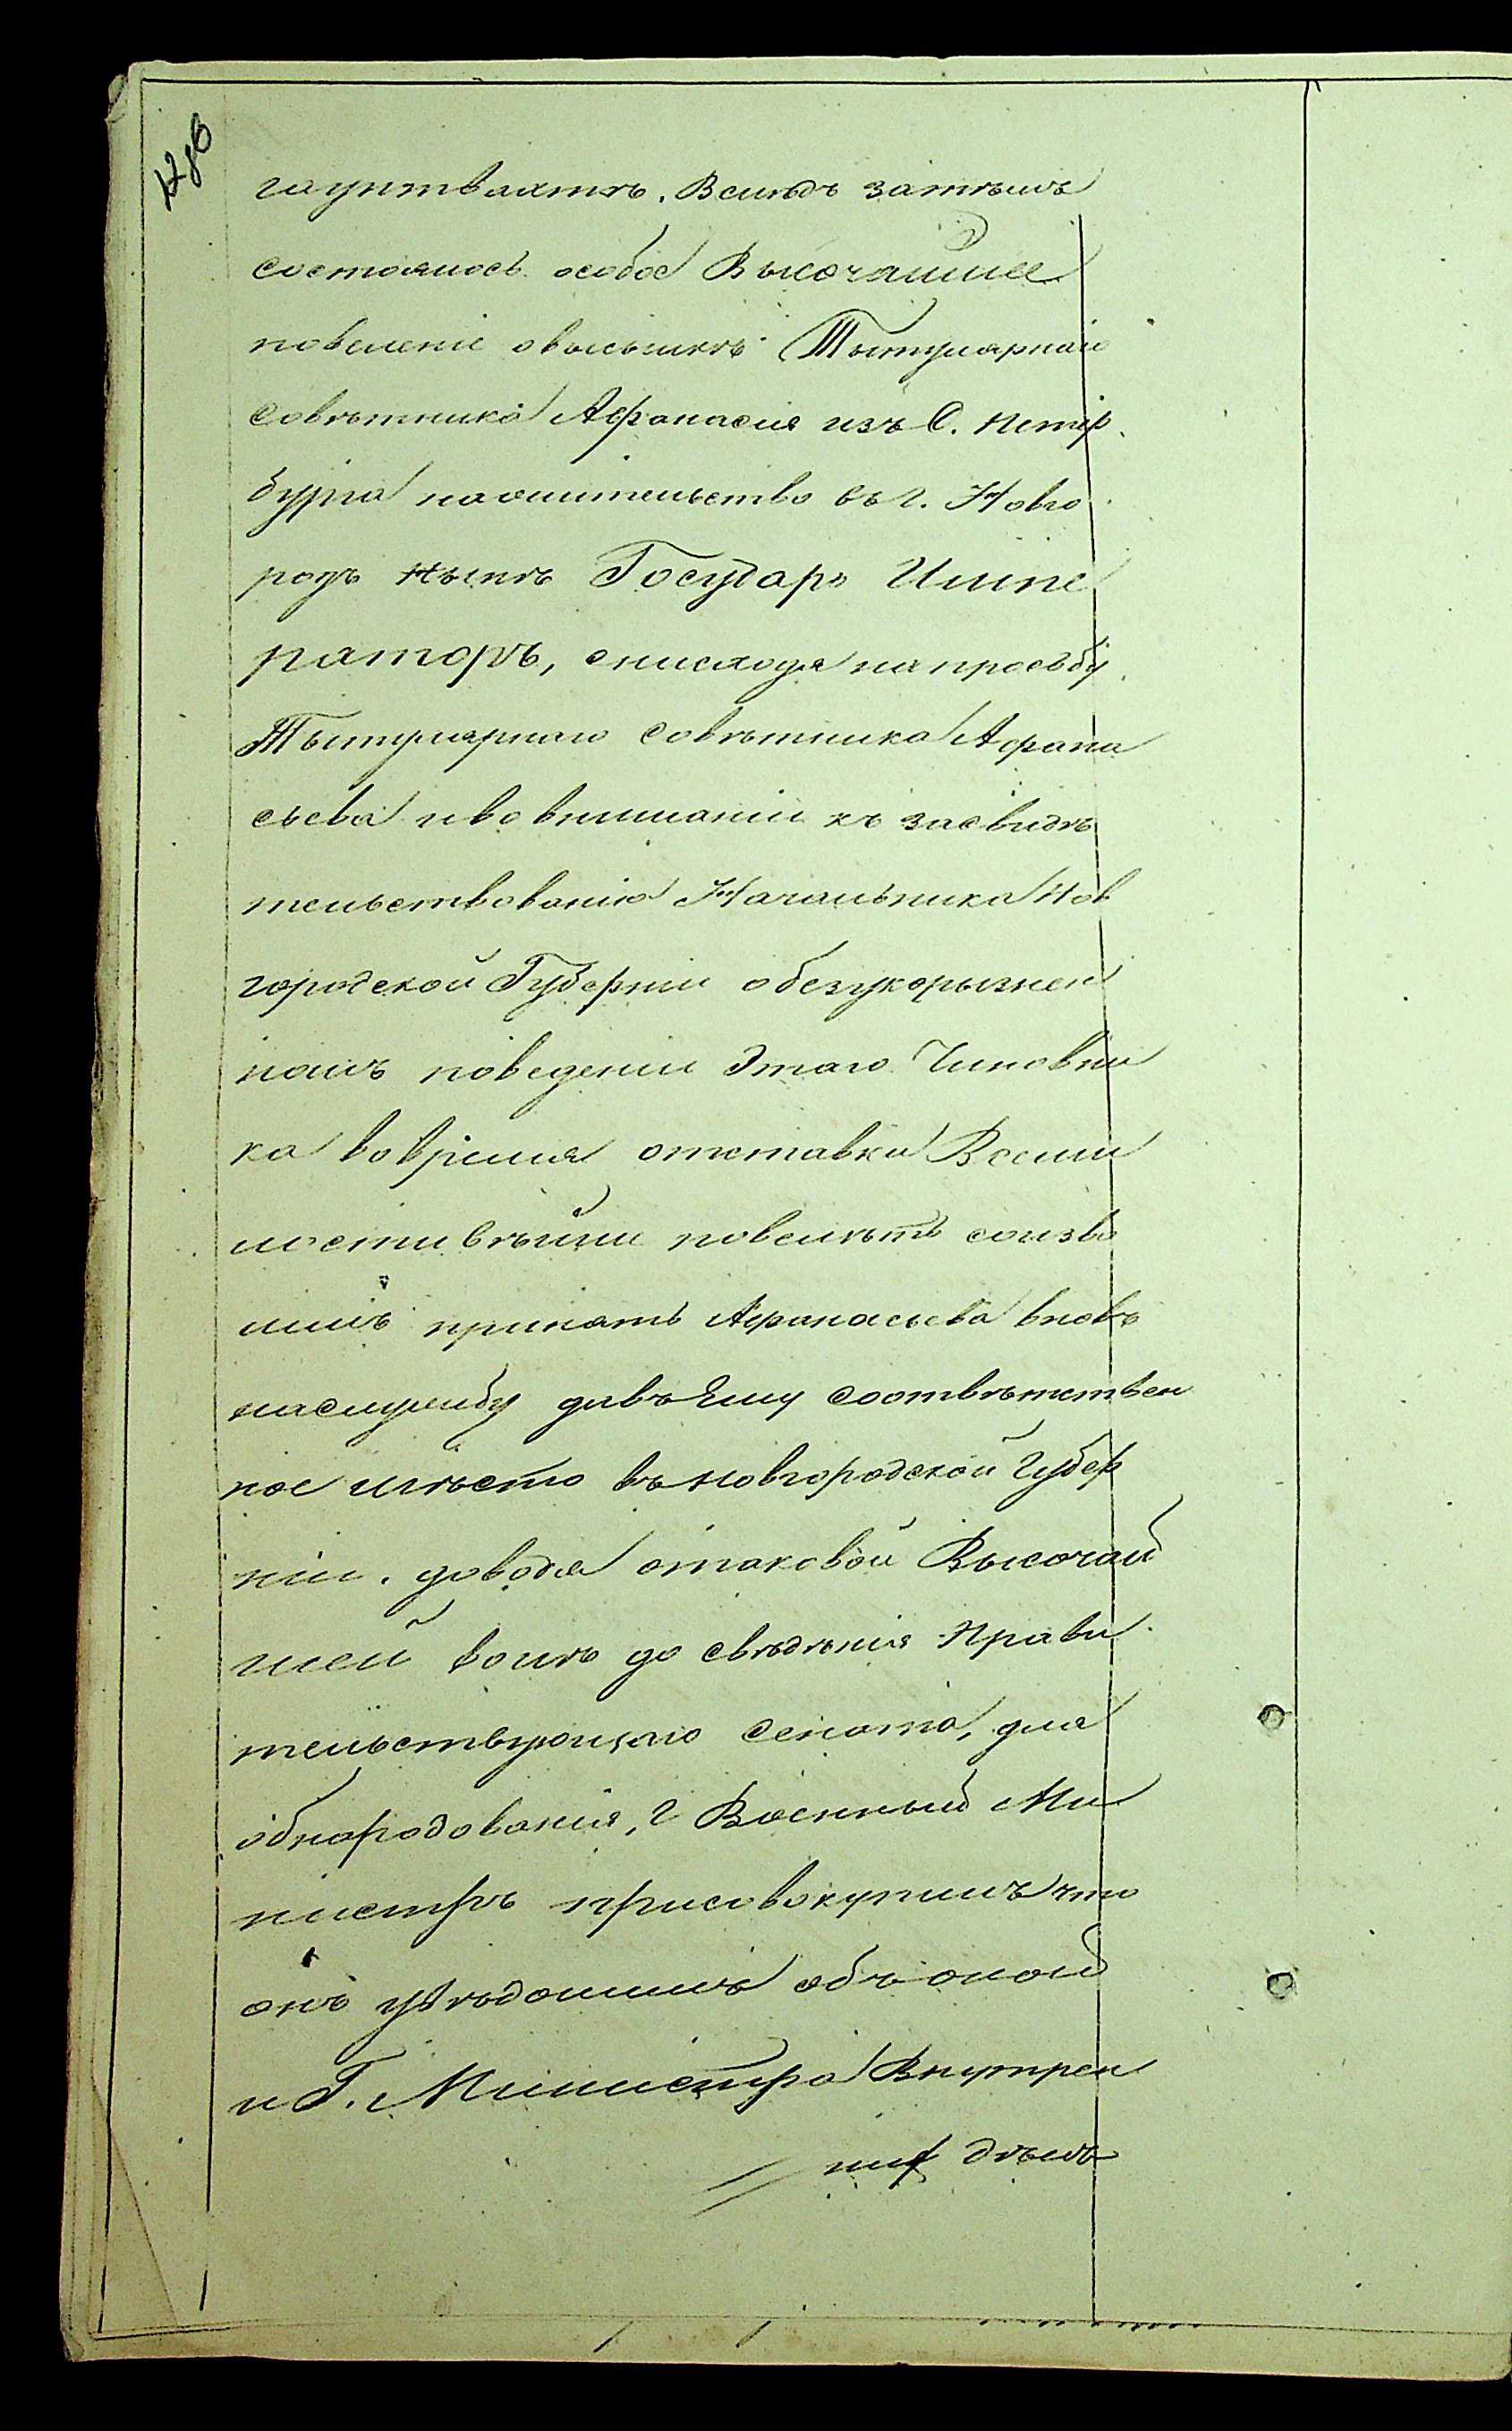 гауптвахтѣ. Вслѣдъ затѣмъ
состоялось особое Высочайшее
повеленіе овысылкѣ Тытулярнаго
Совѣтника Афанасія изъ С. Петер
бурга нажительство въ г. Новго
родъ Нынѣ Государь Импе
раторъ, снисходя напросьбу
Тытулярнаго Совѣтника Афана
сьева ивовниманіи къ засвидѣ
тельствованію Начальника Нов
городской Губерніи обезукоризнен
номъ поведеніи Этаго Чиновни
ка вовремя отставки Всеми
лостивѣйше повелѣть соизво
лилъ принять Афанасьева вновь
наслужбу давъ Ему соотвѣтствен
ное мѣсто въ Новгородской Губер
ніи. доводя отаковой Высочай
шей волѣ до свѣдѣнія Прави
тельствующаго Сената, для
обнародованія, Г Военный Ми
нистръ присовокупилъ что
онъ увѣдомилъ объ оной
и Г. Министра Внутрен
нихъ дѣлъ